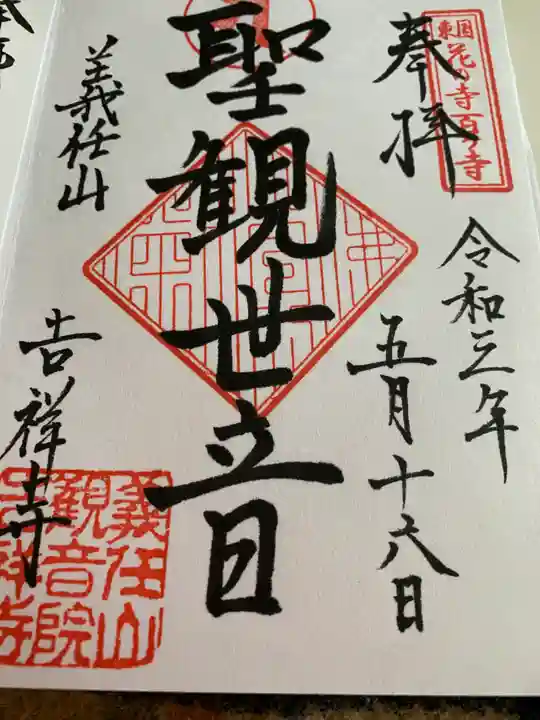 東国花の寺百ヶ寺
奉拝
令和三年
五月十六日
聖観世音
義任山
吉祥寺
義任山
観音院
吉祥寺
奉拝